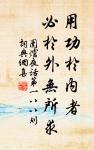 用功於內者
必於外無所求
圍爐夜話第一八八則
詞典網集